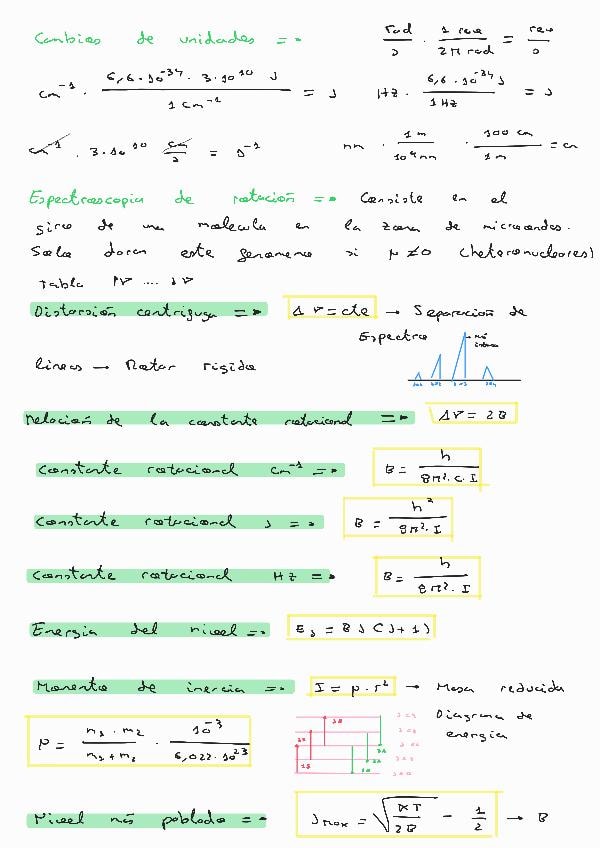 Cambios de unidades => rad/s · 1 rev / 2π rad = rev/s
cm⁻¹ · 6,6·10⁻³⁴ · 3·10¹⁰ J / 1 cm⁻¹ = J Hz · 6,6·10⁻³⁴ J / 1 Hz = J
cm⁻¹ · 3·10¹⁰ cm/s = s⁻¹ nm · 1 m / 10⁹ nm · 100 cm / 1 m = cm
Espectroscopia de rotación => Consiste en el
giro de una molecula en la zona de microondas.
Solo daran este fenomeno si μ≠0 (heteronucleares)
Tabla
Distorsión centrifuga => Δν = cte → Separación de
Espectro
Más intenso
lineas → Rotor rigido
Relación de la constante rotacional => Δν = 2B
Constante rotacional cm⁻¹ => B = h / 8π²·c·I
Constante rotacional J => B = h² / 8π²·I
Constante rotacional Hz => B = h / 8π²·I
Energia del nivel => E_J = B J (J+1)
Momento de inercia => I = μ·r² → Masa reducida
μ = m₁·m₂ / m₁+m₂ · 10⁻³ / 6,022·10²³
Diagrama de
energia
Nivel más poblado => J_max = √(KT / 2B) − 1/2 → B